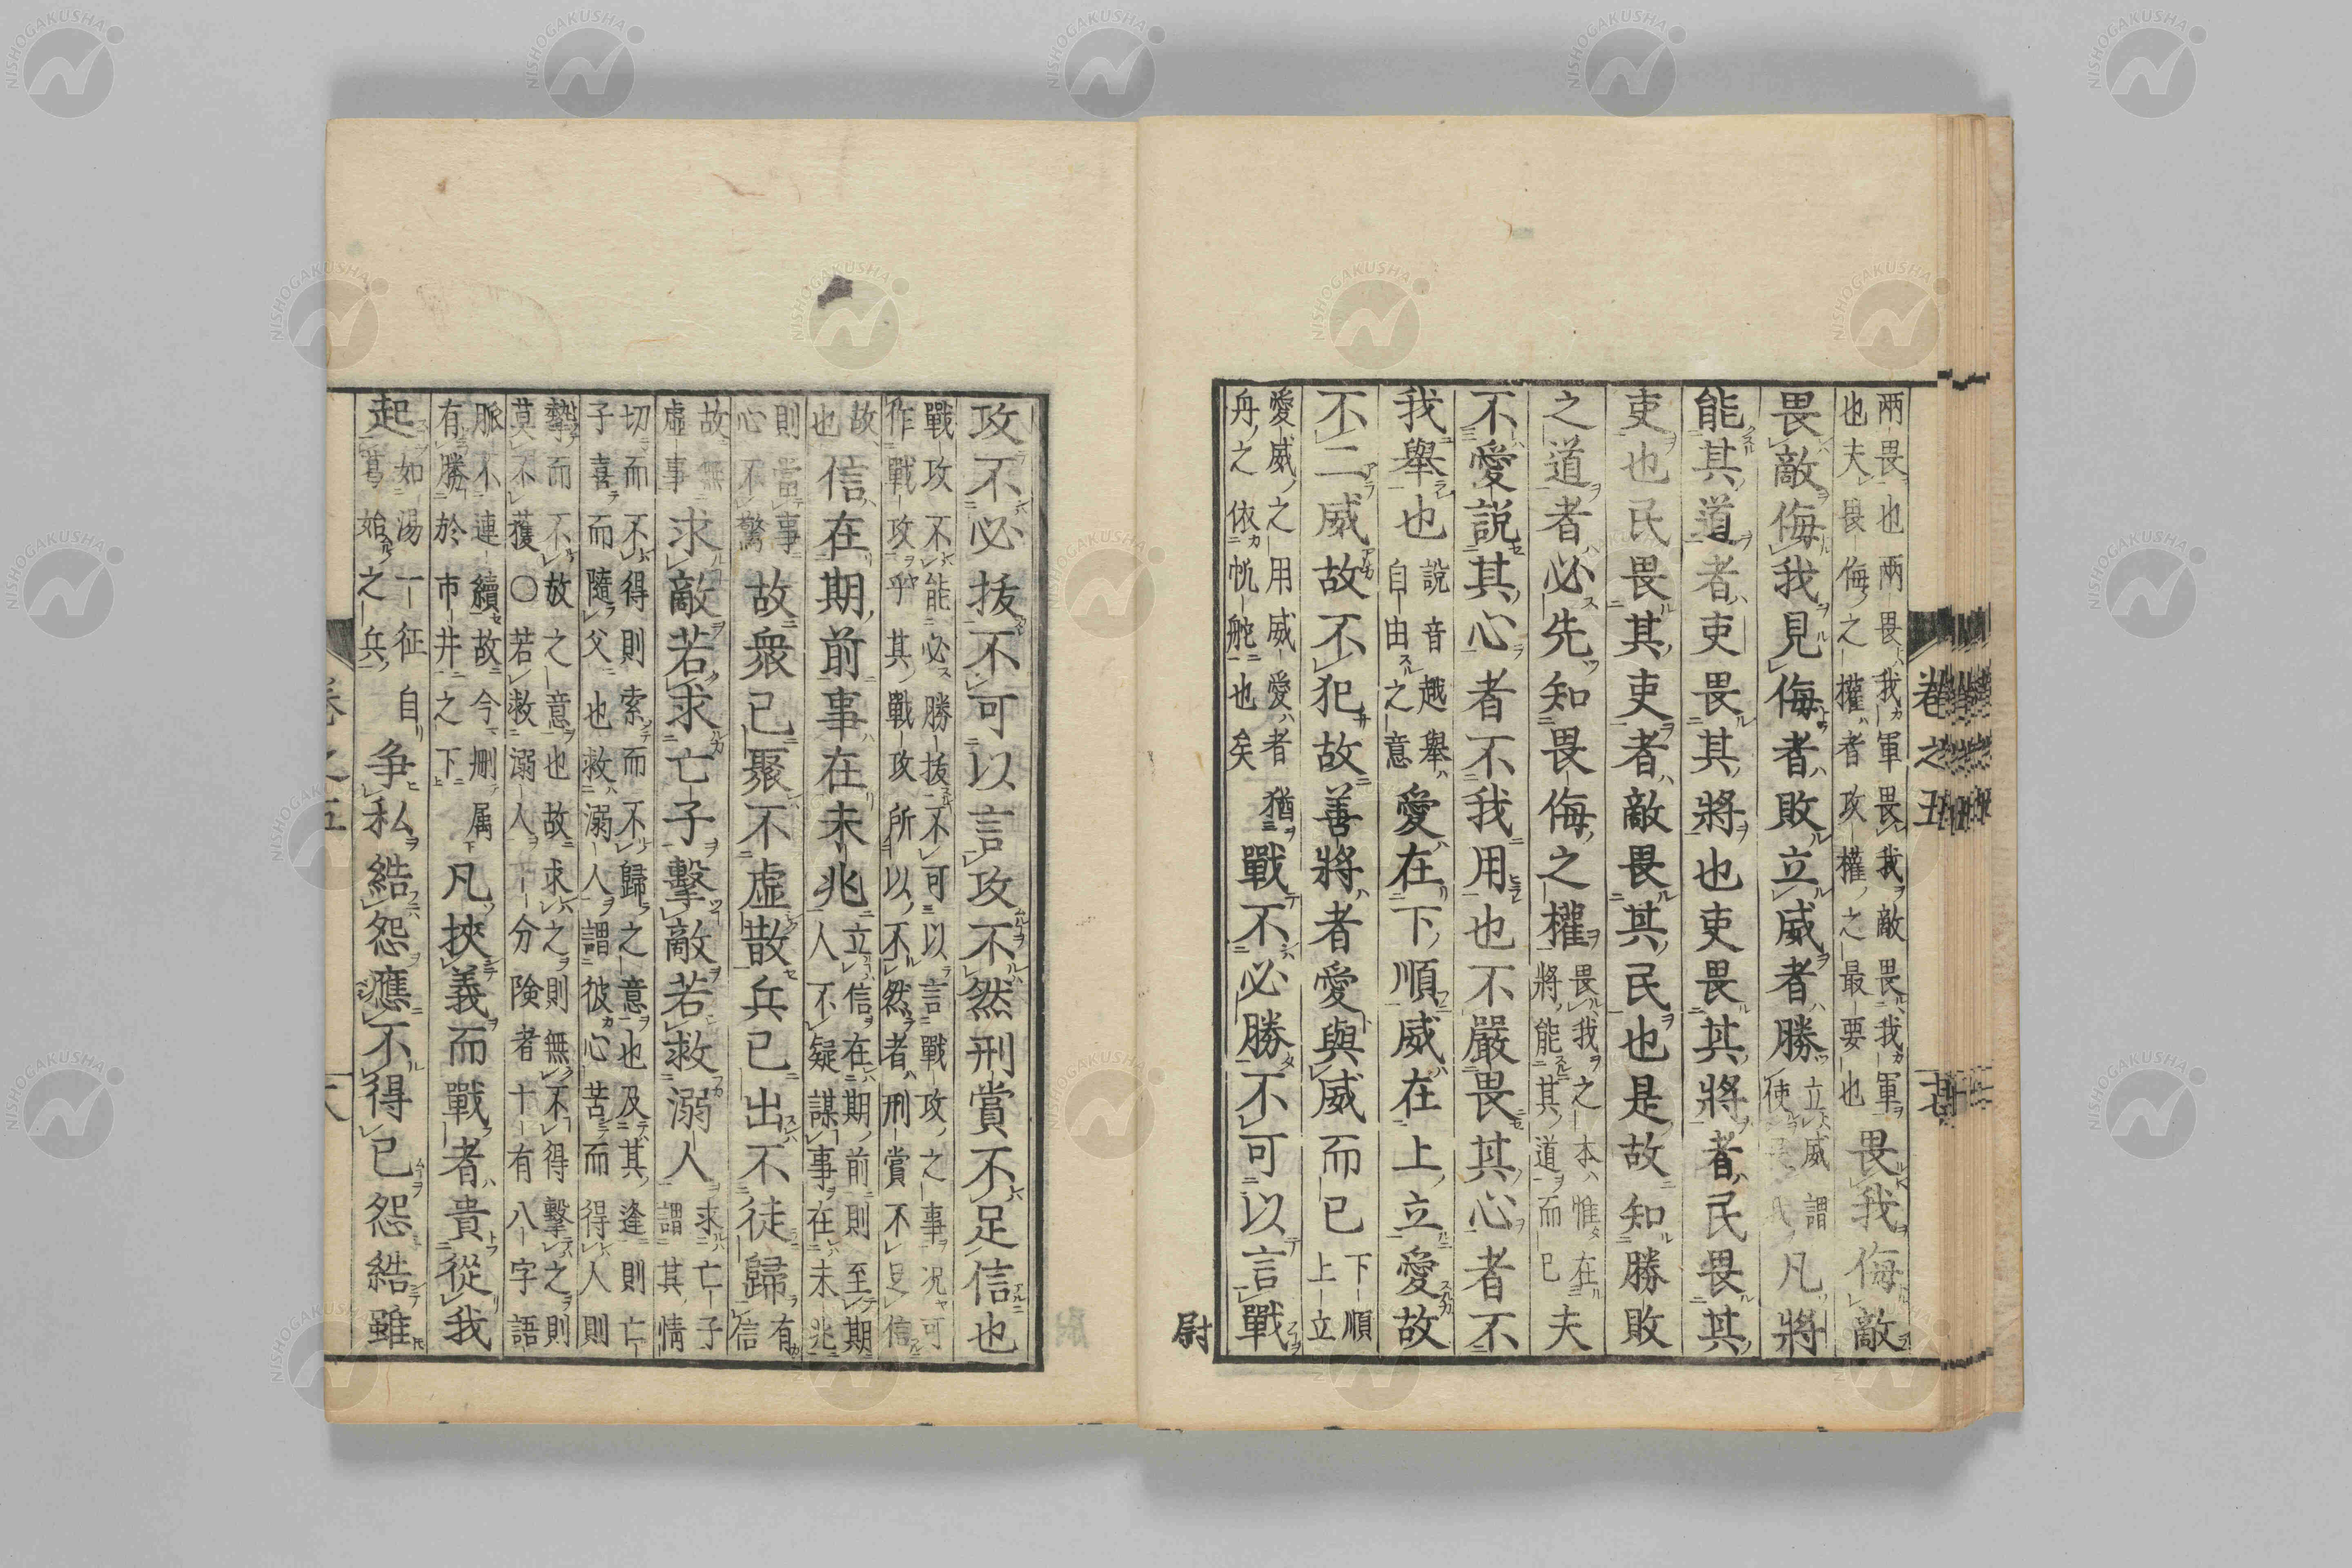 兩畏也兩畏我軍畏我敵畏我軍
也夫畏侮之權者攻權之最要也
畏我侮敵
畏敵侮我見侮者敗立威者勝
立威謂
使
凡將
能其道者吏畏其將也吏畏其將者民畏其
吏也民畏其吏者敵畏其民也是故知勝敗
之道者必先知畏侮之權
畏我之本惟在
將能其道而已
夫
不愛說其心者不我用也不嚴畏其心者不
我舉也
說音越舉
自由之意
愛在下順威在上立愛故
不二威故不犯故善將者愛與威而已
下順
上立
愛威之用威愛者猶
舟之依帆舵也矣
戰不必勝不可以言戰
尉
卷之五
廿七
攻不必拔不可以言攻不然刑賞不足信也
戰攻不能必勝拔不可以言戰攻之事况可
作戰攻乎其戰攻所以不然者刑賞不足信
故
也
信在期前事在未兆
立信在期前則至期
人不疑謀事在未兆
則當事有
心不驚信
故衆已聚不虛散兵已出不徒歸
故無
虛事
求敵若求亡子擊敵若救溺人
求亡子
謂其情
切而不得則索而不歸之意也及其逢則亡
子喜而隨父也救溺人謂彼心苦而得人則
勢而不放之意也故求之則無不得擊之則
莫不獲〇若救溺人下分険者十有八字語
脈不連續故今刪属
有勝於市井之下
凡挾義而戰者貴從我
起
如湯一征自
葛始之兵
争私結怨應不得已怨結雖
NISHOGAKUSHA